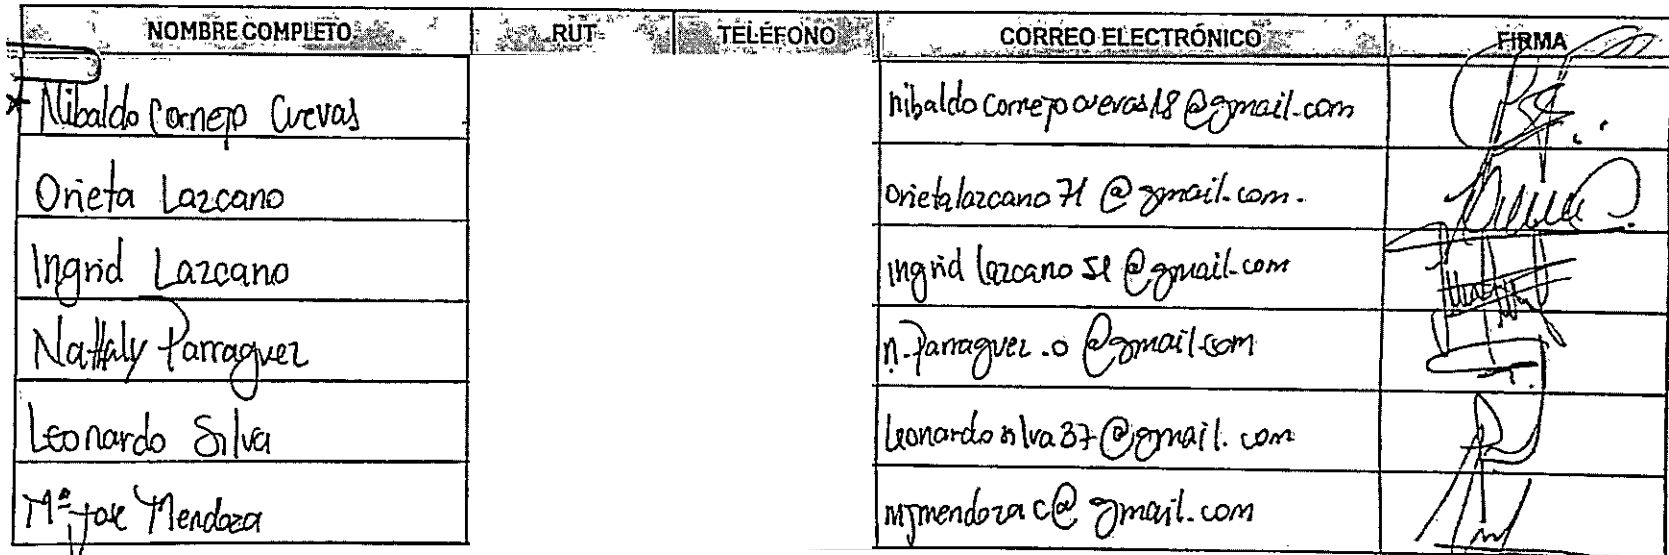 NOMBRE COMPLETO RUT TELÉFONO CORREO ELECTRÓNICO FIRMA
* Nibaldo Cornejo Cuevas nibaldocornejocuevas18@gmail.com
Orieta Lazcano orietalazcano71@gmail.com.
Ingrid Lazcano ingridlazcano51@gmail.com
Nathaly Parraguez n.parraguez.o@gmail.com
Leonardo Silva leonardosilva37@gmail.com
Mª José Mendoza mjmendozac@gmail.com